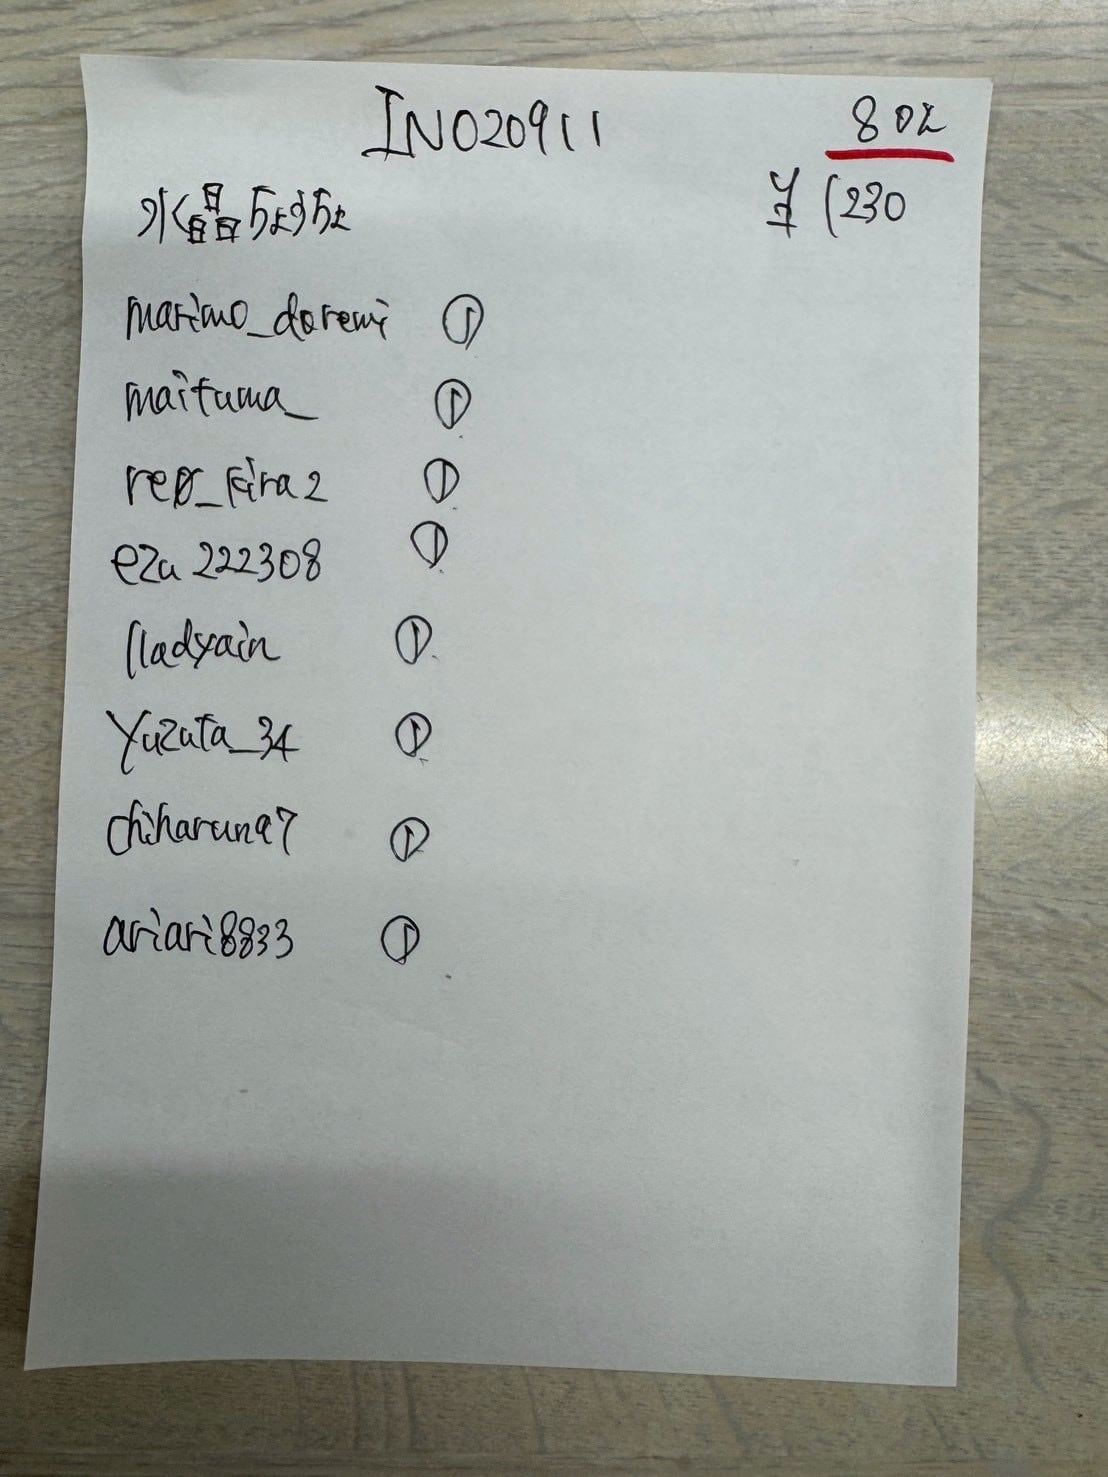 INO20911
8点
¥1230
水晶ちょうちょ
marimo_doremi ①
maituma_ ①
reo_kira2 ①
eza222308 ①
lladyain ①
yuzuta_34 ①
chiharuna7 ①
ariari8833 ①